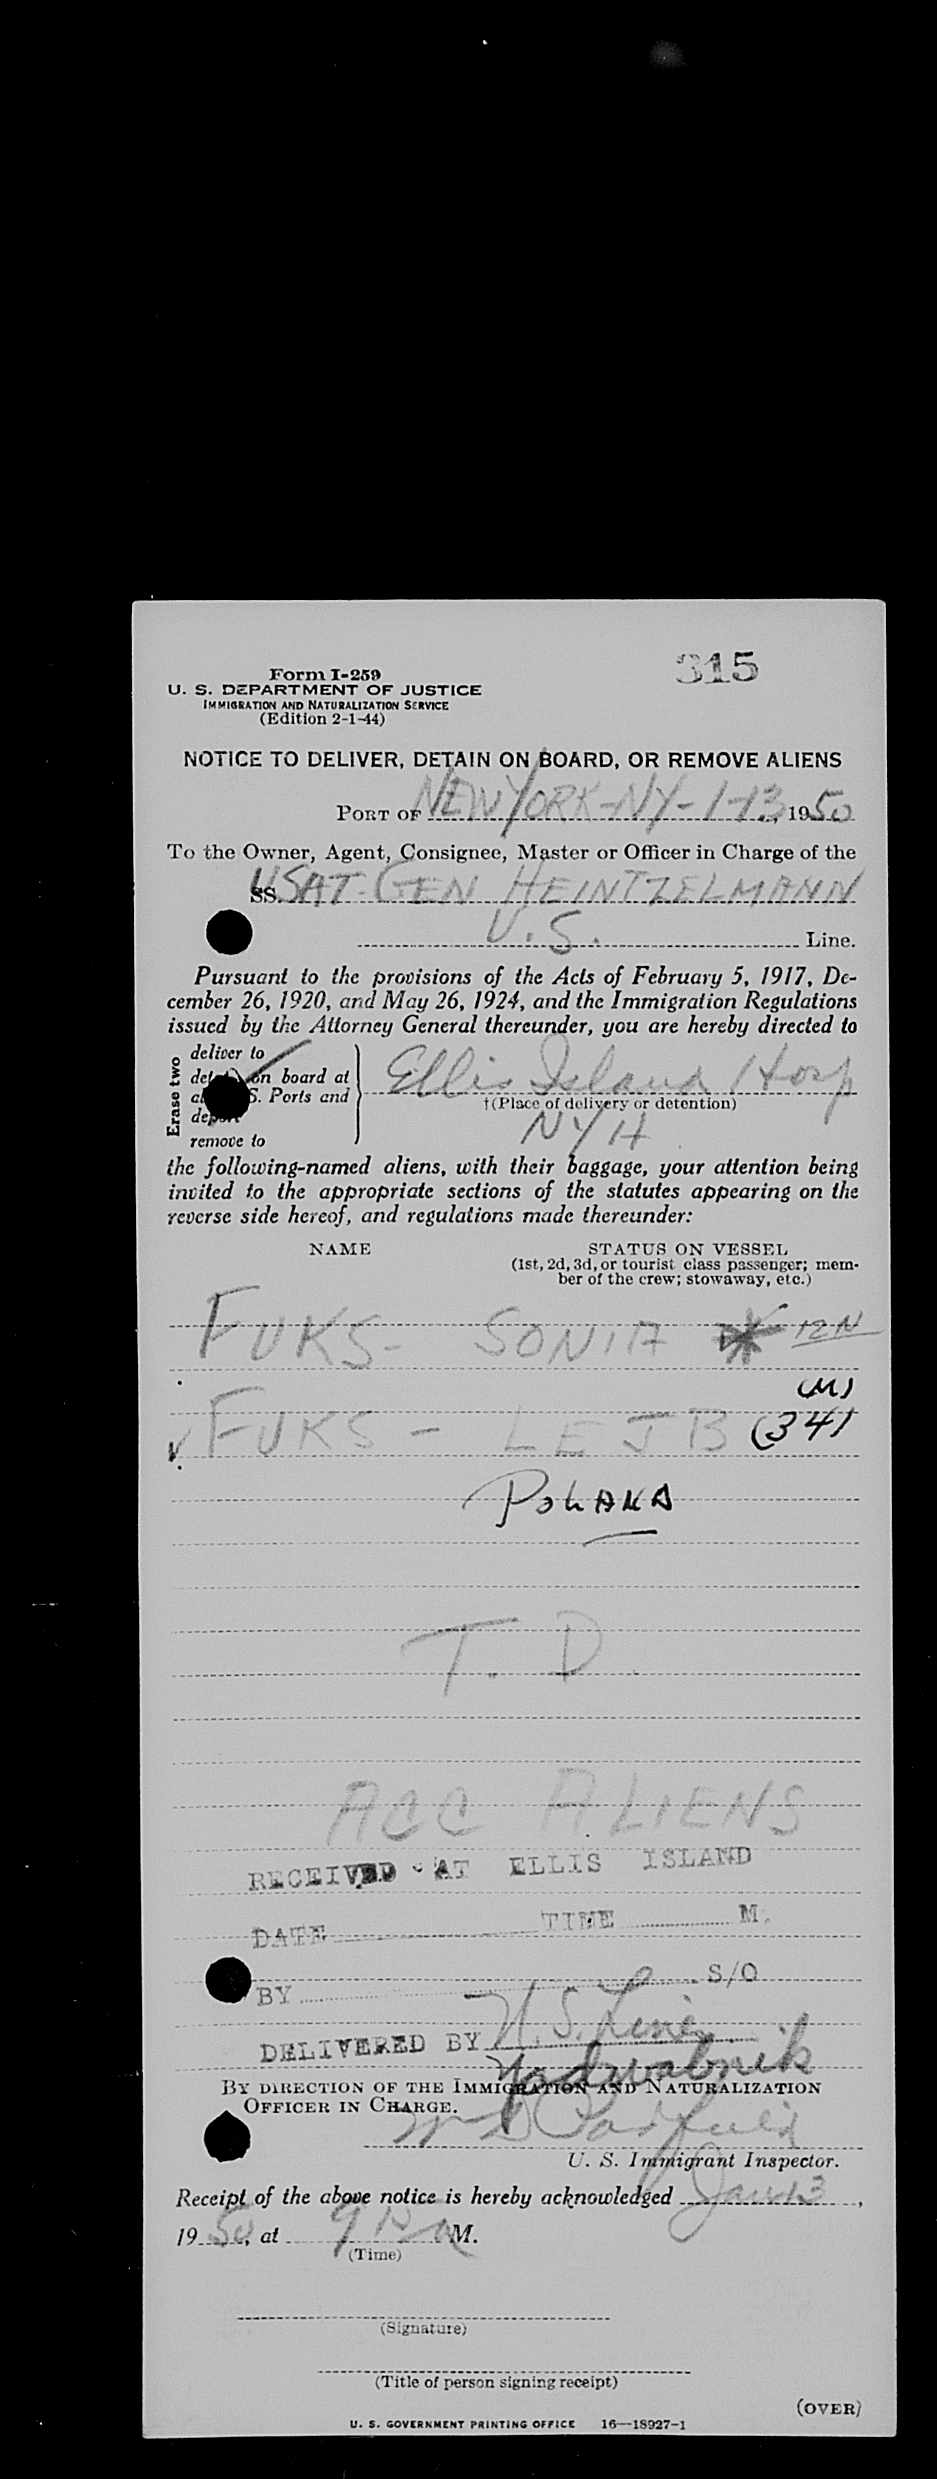 315
Form I-259
U. S. DEPARTMENT OF JUSTICE
IMMIGRATION AND NATURALIZATION SERVICE
(Edition 2-1-44)
NOTICE TO DELIVER, DETAIN ON BOARD, OR REMOVE ALIENS
PORT OF NEW YORK-NY-1-13, 1950
To the Owner, Agent, Consignee, Master or Officer in Charge of the
SS. USAT-GEN HEINTZELMANN
U.S. Line.
Pursuant to the provisions of the Acts of February 5, 1917, De-
cember 26, 1920, and May 26, 1924, and the Immigration Regulations
issued by the Attorney General thereunder, you are hereby directed to
Erase two
deliver to
on board at
S. Ports and
remove to
Ellis Island Hosp
†(Place of delivery or detention)
NYH
the following-named aliens, with their baggage, your attention being
invited to the appropriate sections of the statutes appearing on the
reverse side hereof, and regulations made thereunder:
NAME STATUS ON VESSEL
(1st, 2d, 3d, or tourist class passenger; mem-
ber of the crew; stowaway, etc.)
FUKS- SONIA * 12N
(M)
FUKS - LEJB (34)
T. D.
ACC ALIENS
RECEIVED AT ELLIS ISLAND
DATE TIME M.
BY S/O
DELIVERED BY U.S. Lines
BY DIRECTION OF THE IMMIGRATION AND NATURALIZATION
OFFICER IN CHARGE.
U. S. Immigrant Inspector.
Receipt of the above notice is hereby acknowledged Jan 13,
1950, at M.
(Time)
(Signature)
(Title of person signing receipt)
(OVER)
U. S. GOVERNMENT PRINTING OFFICE 16—18927-1